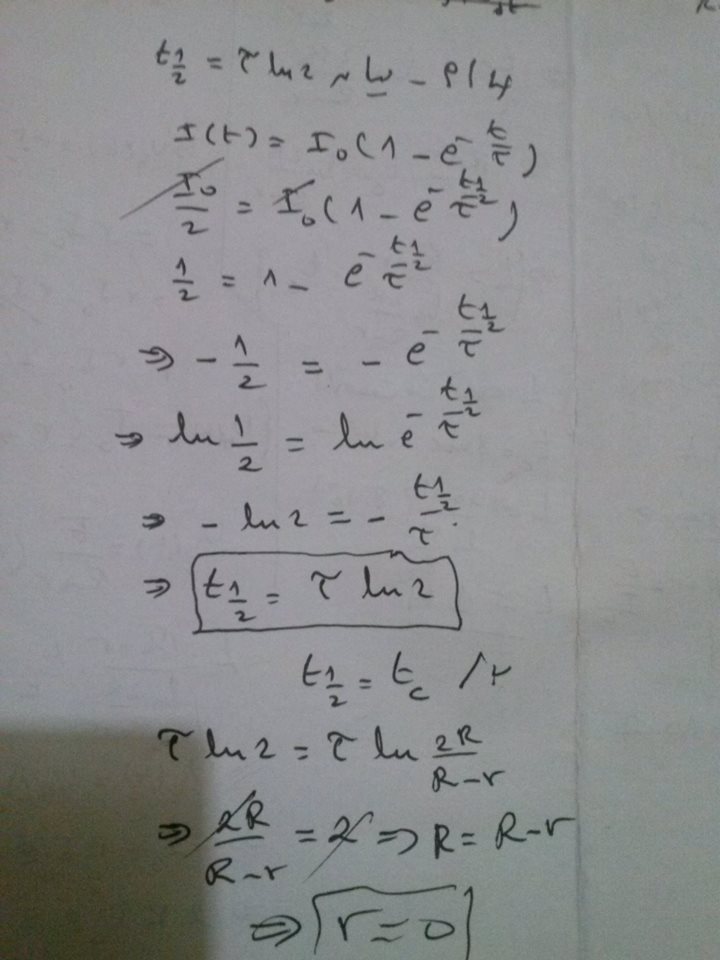 t½ = τ ln2 بين أن - 4
I(t) = I₀(1 - e^(-t/τ))
I₀/2 = I₀(1 - e^(-t½/τ))
1/2 = 1 - e^(-t½/τ)
⇒ - 1/2 = - e^(-t½/τ)
⇒ ln 1/2 = ln e^(-t½/τ)
⇒ - ln2 = - t½/τ
⇒ t½ = τ ln2
t½ = t_c
τ ln2 = τ ln 2R/(R-r)
⇒ 2R/(R-r) = 2 ⇒ R = R-r
⇒ r=0